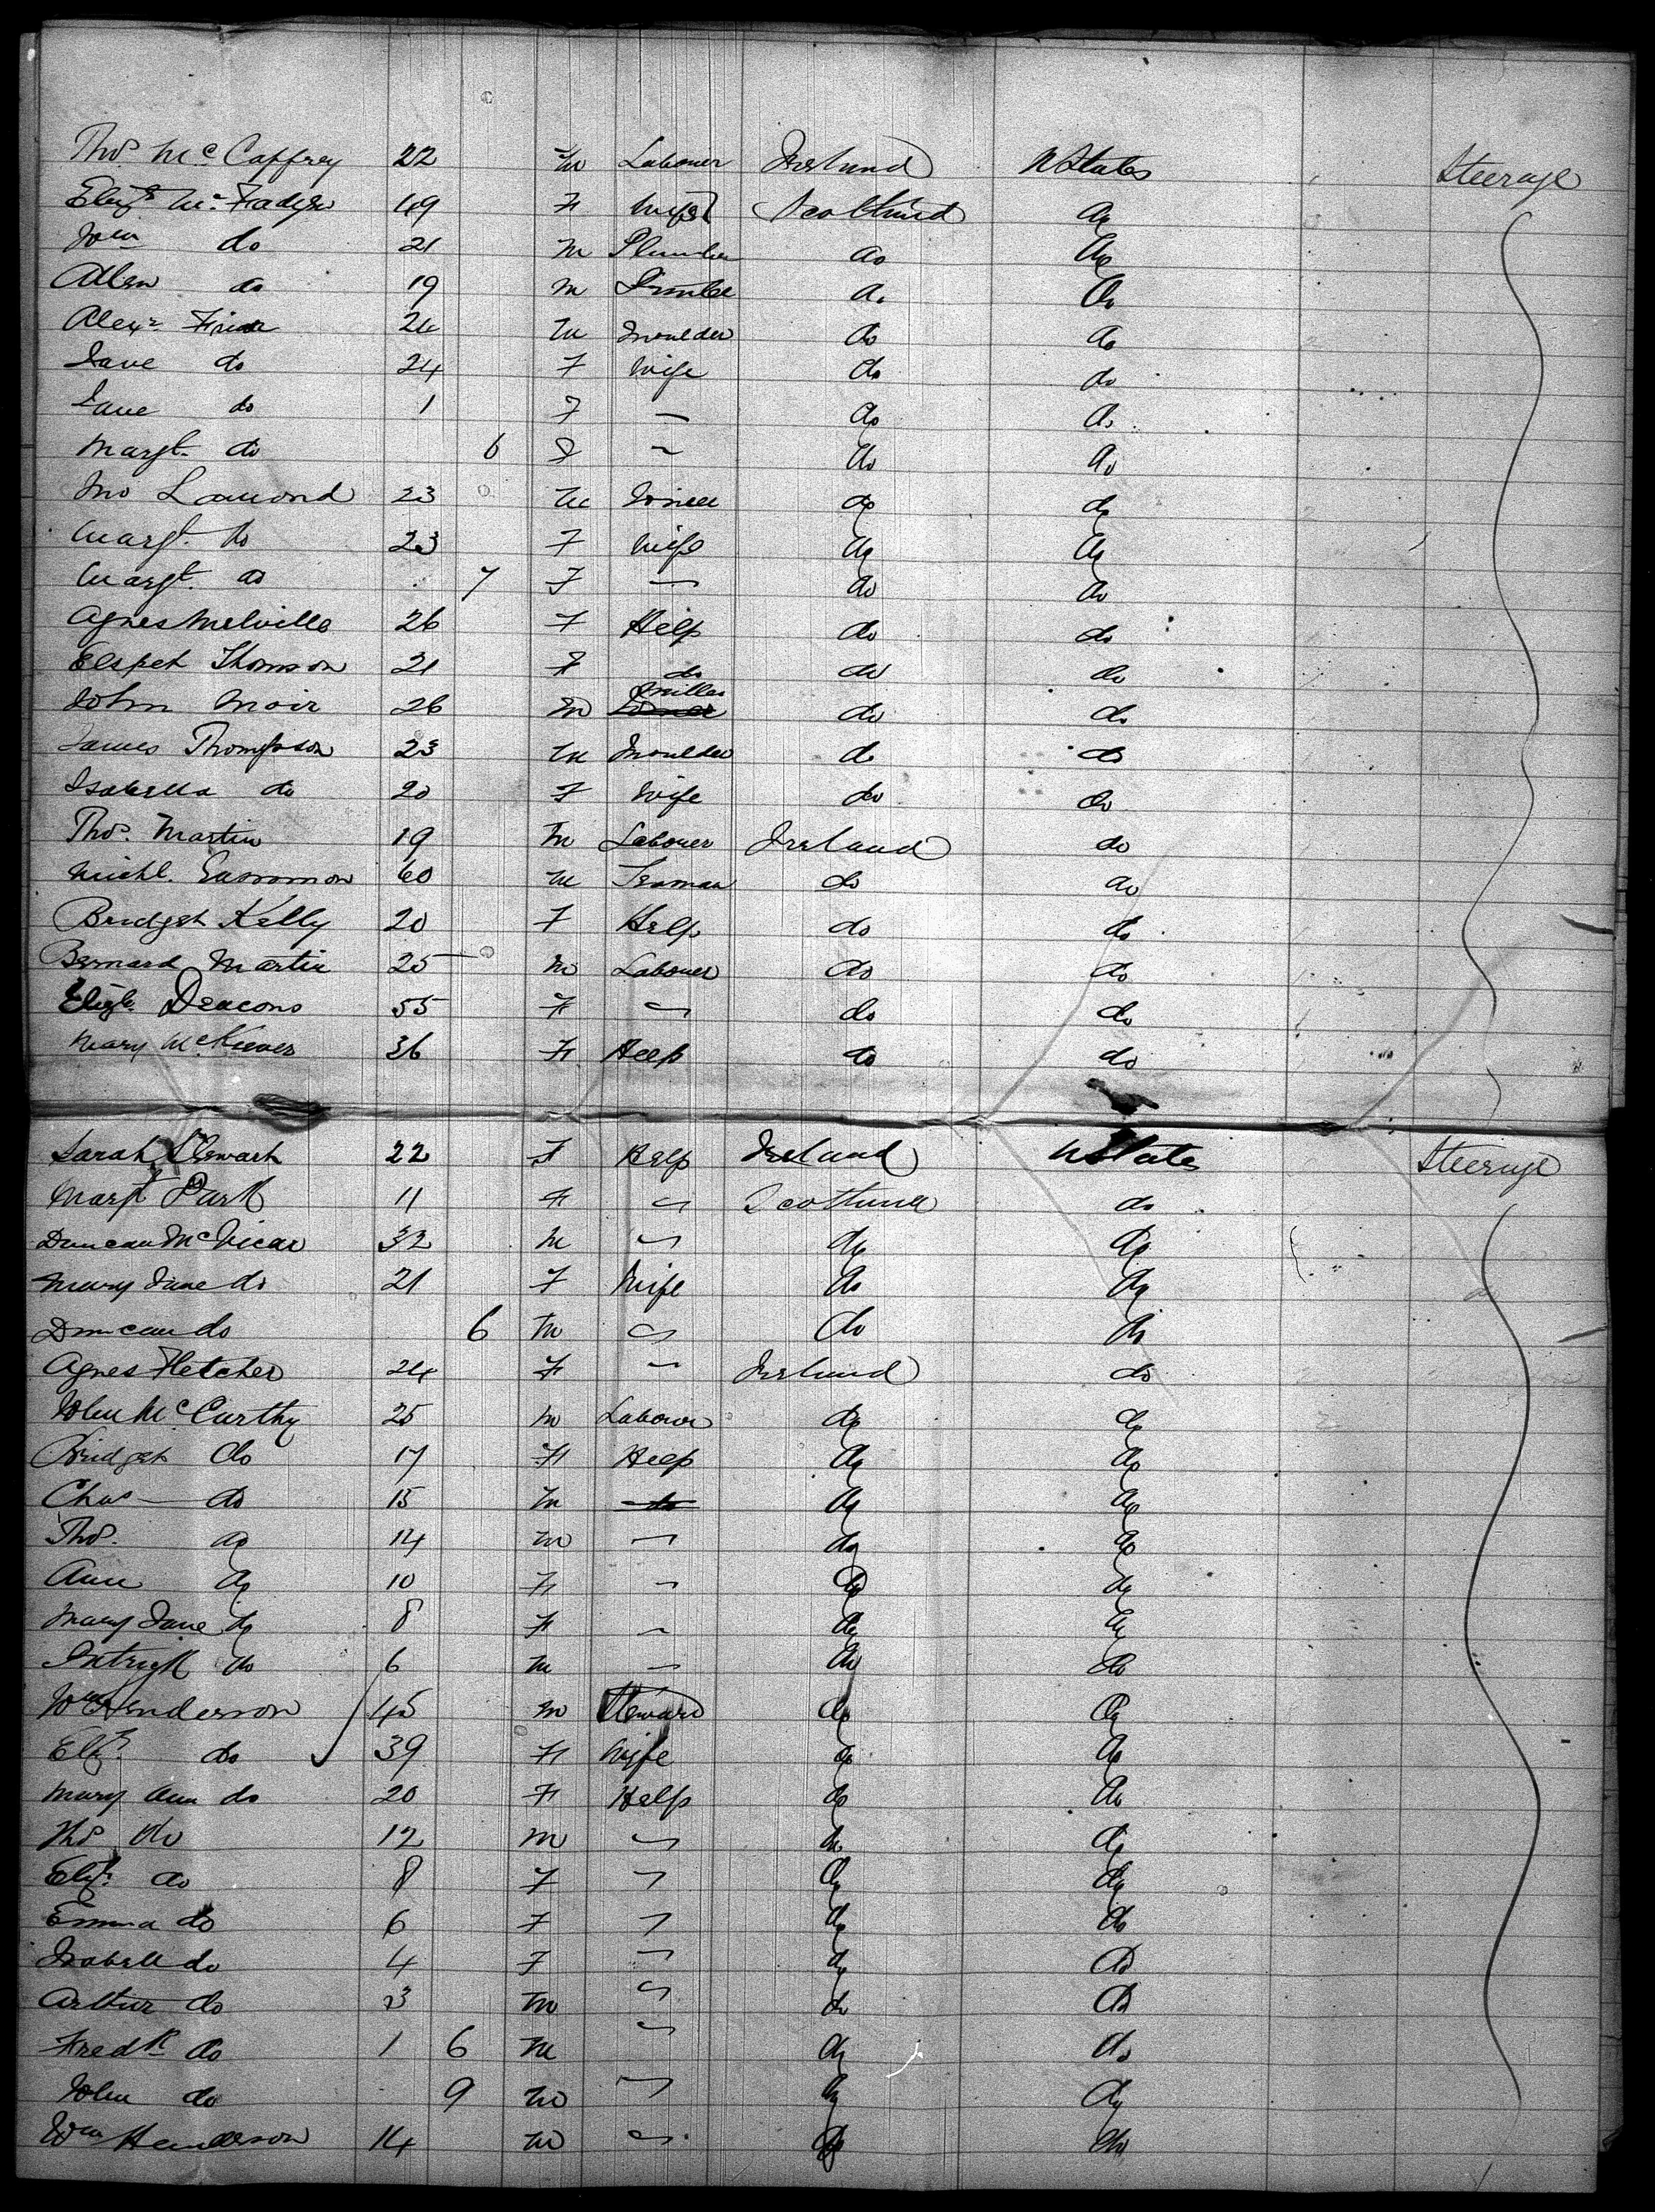 Thos McCaffrey 22 M Labourer Ireland U States Steerage
Elizth McFadyen 49 F Wife Scotland do
Wm do 21 M Plumber do do
Allan do 19 M do do
Alexr 24 M Moulder do do
Jane do 24 F Wife do do
Jane do 1 F — do do
Margt do 6 F — do do
Jno Lamond 23 M Joiner do do
Margt do 23 F Wife do do
Margt do 7 F — do do
Agnes Melville 26 F Help do do
Elspet Thomson 21 F do do do
John Moir 26 M Miller do do
James Thompson 23 M Moulder do do
Isabella do 20 F Wife do do
Thos. Martin 19 M Labourer Ireland do
Michl. 60 M Seaman do do
Bridget Kelly 20 F Help do do
Bernard Martin 25 M Labourer do do
Elizth Deacons 55 F — do do
Mary McKeever 36 F Help do do
Sarah Stewart 22 F Help Ireland U States Steerage
Margt Park 11 F — Scotland do
Duncan McVicar 32 M — do do
Mary Jane do 21 F Wife do do
Duncan do 6 M — do do
Agnes Fletcher 24 F — Ireland do
John McCarthy 25 M Labourer do do
Bridget do 17 F Help do do
Chas do 15 M do do do
Thos. do 14 M — do do
Ann do 10 F — do do
Mary Jane do 8 F — do do
Patrick do 6 M — do do
Wm Henderson 45 M Steward do do
Elizth do 39 F Wife do do
Mary Ann do 20 F Help do do
Thos do 12 M — do do
Elizth do 8 F — do do
Emma do 6 F — do do
Isabell do 4 F — do do
Arthur do 3 M — do do
Fredk do 1 6 M — do do
John do 9 M — do do
Wm Henderson 14 M — do do